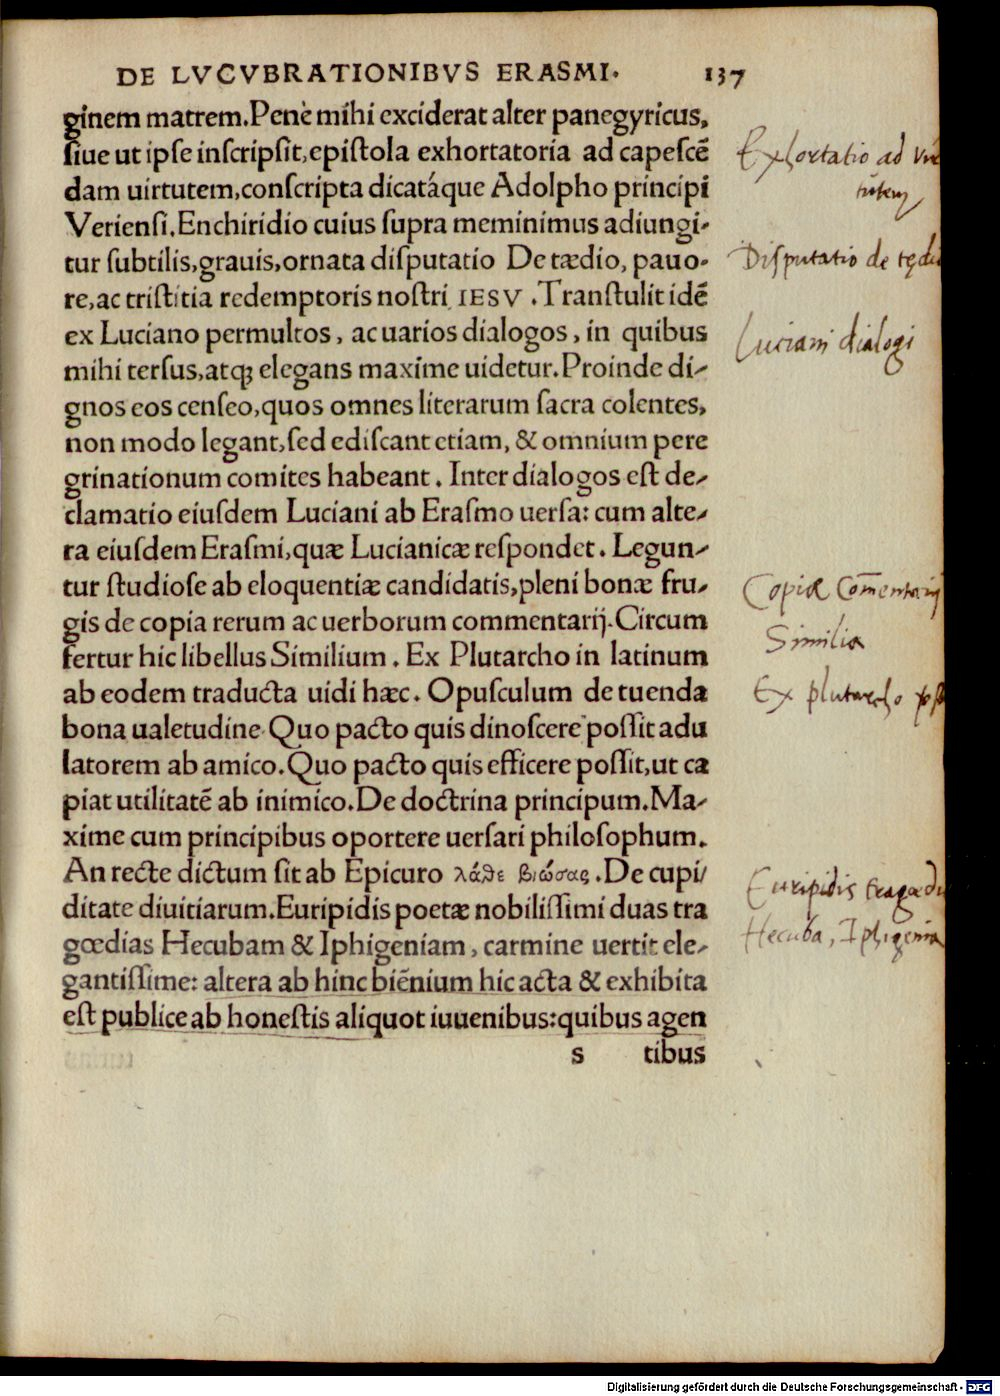 DE LVCVBRATIONIBVS ERASMI. 137
ginem matrem.Penè mihi exciderat alter panegyricus,
ſiue ut ipſe inſcripſit,epiſtola exhortatoria ad capeſcē
dam uirtutem,conſcripta dicatáque Adolpho principi
Verienſi.Enchiridio cuius ſupra meminimus adiungi-
tur ſubtilis,grauis,ornata diſputatio De tædio, pauo-
re,ac triſtitia redemptoris noſtri IESV .Tranſtulit idē
ex Luciano permultos, ac uarios dialogos, in quibus
mihi terſus,atqꝫ elegans maxime uidetur.Proinde di-
gnos eos cenſeo,quos omnes literarum ſacra colentes,
non modo legant,ſed ediſcant etiam, & omnium pere
grinationum comites habeant. Inter dialogos eſt de-
clamatio eiuſdem Luciani ab Eraſmo uerſa: cum alte-
ra eiuſdem Eraſmi,quæ Lucianicæ reſpondet. Legun-
tur ſtudioſe ab eloquentiæ candidatis,pleni bonæ fru-
gis de copia rerum ac uerborum commentarij.Circum
fertur hic libellus Similium. Ex Plutarcho in latinum
ab eodem traducta uidi hæc. Opuſculum de tuenda
bona ualetudine. Quo pacto quis dinoſcere poſſit adu
latorem ab amico.Quo pacto quis efficere poſſit,ut ca
piat utilitatē ab inimico.De doctrina principum.Ma-
xime cum principibus oportere uerſari philoſophum.
An recte dictum ſit ab Epicuro λάθε βιώσας.De cupi/
ditate diuitiarum.Euripidis poetæ nobiliſſimi duas tra
gœdias Hecubam & Iphigeniam, carmine uertit ele-
gantiſſime: altera ab hinc biēnium hic acta & exhibita
eſt publice ab honeſtis aliquot iuuenibus:quibus agen
s tibus
Exhortatio ad Vir
tutem
Disputatio de tędio
Luciani dialogi
Copiæ Com̄entarij
Similia
Ex plutarcho
Euripidis tragœdiæ
Hecuba, Iphigenia
Digitalisierung gefördert durch die Deutsche Forschungsgemeinschaft - DFG